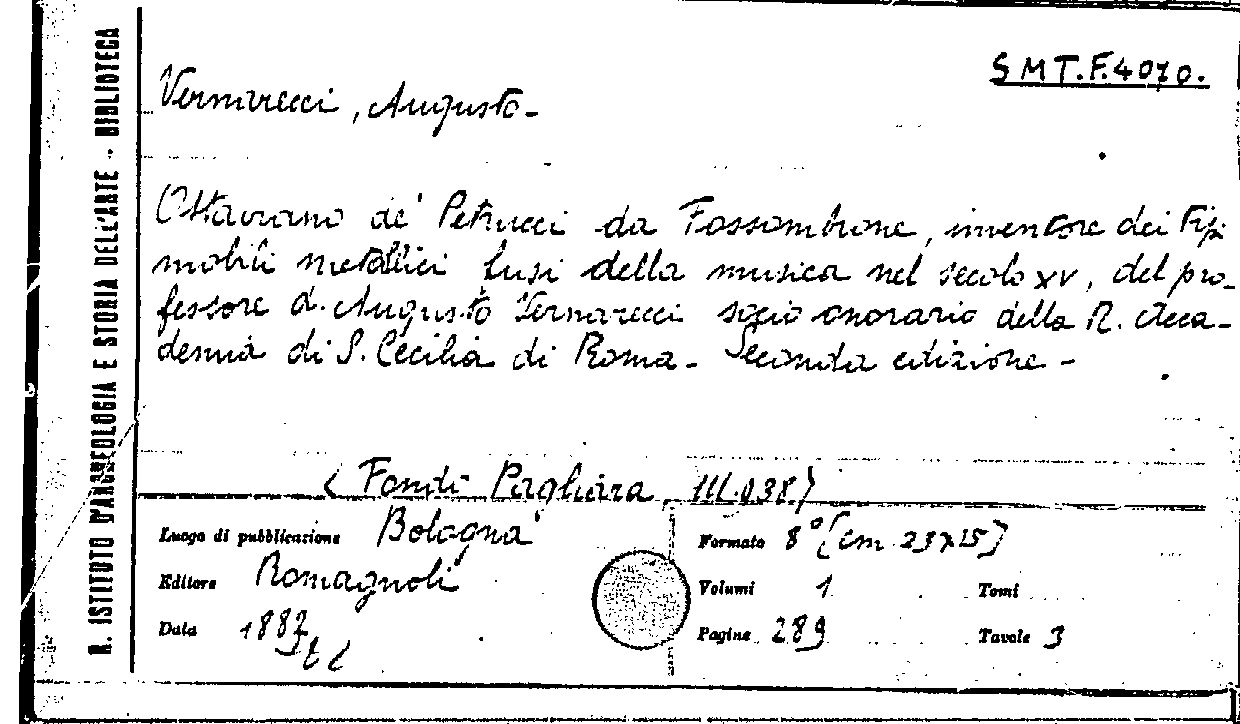 R. ISTITUTO D'ARCHEOLOGIA E STORIA DELL'ARTE - BIBLIOTECA
SMT.F.4070.
Vernarecci, Augusto.-
Ottaviano de' Petrucci da Fossombrone, inventore dei tipi
mobili metallici fusi della musica nel secolo XV, del pro-
fessore d. Augusto Vernarecci socio onorario della R. Acca-
demia di S. Cecilia di Roma. - Seconda edizione.-
(Fondo Pagliara, III.038)
Luogo di pubblicazione Bologna
Editore Romagnoli
Data 1882
Formato 8° (cm 23x15)
Volumi 1 Tomi
Pagine 289 Tavole 3